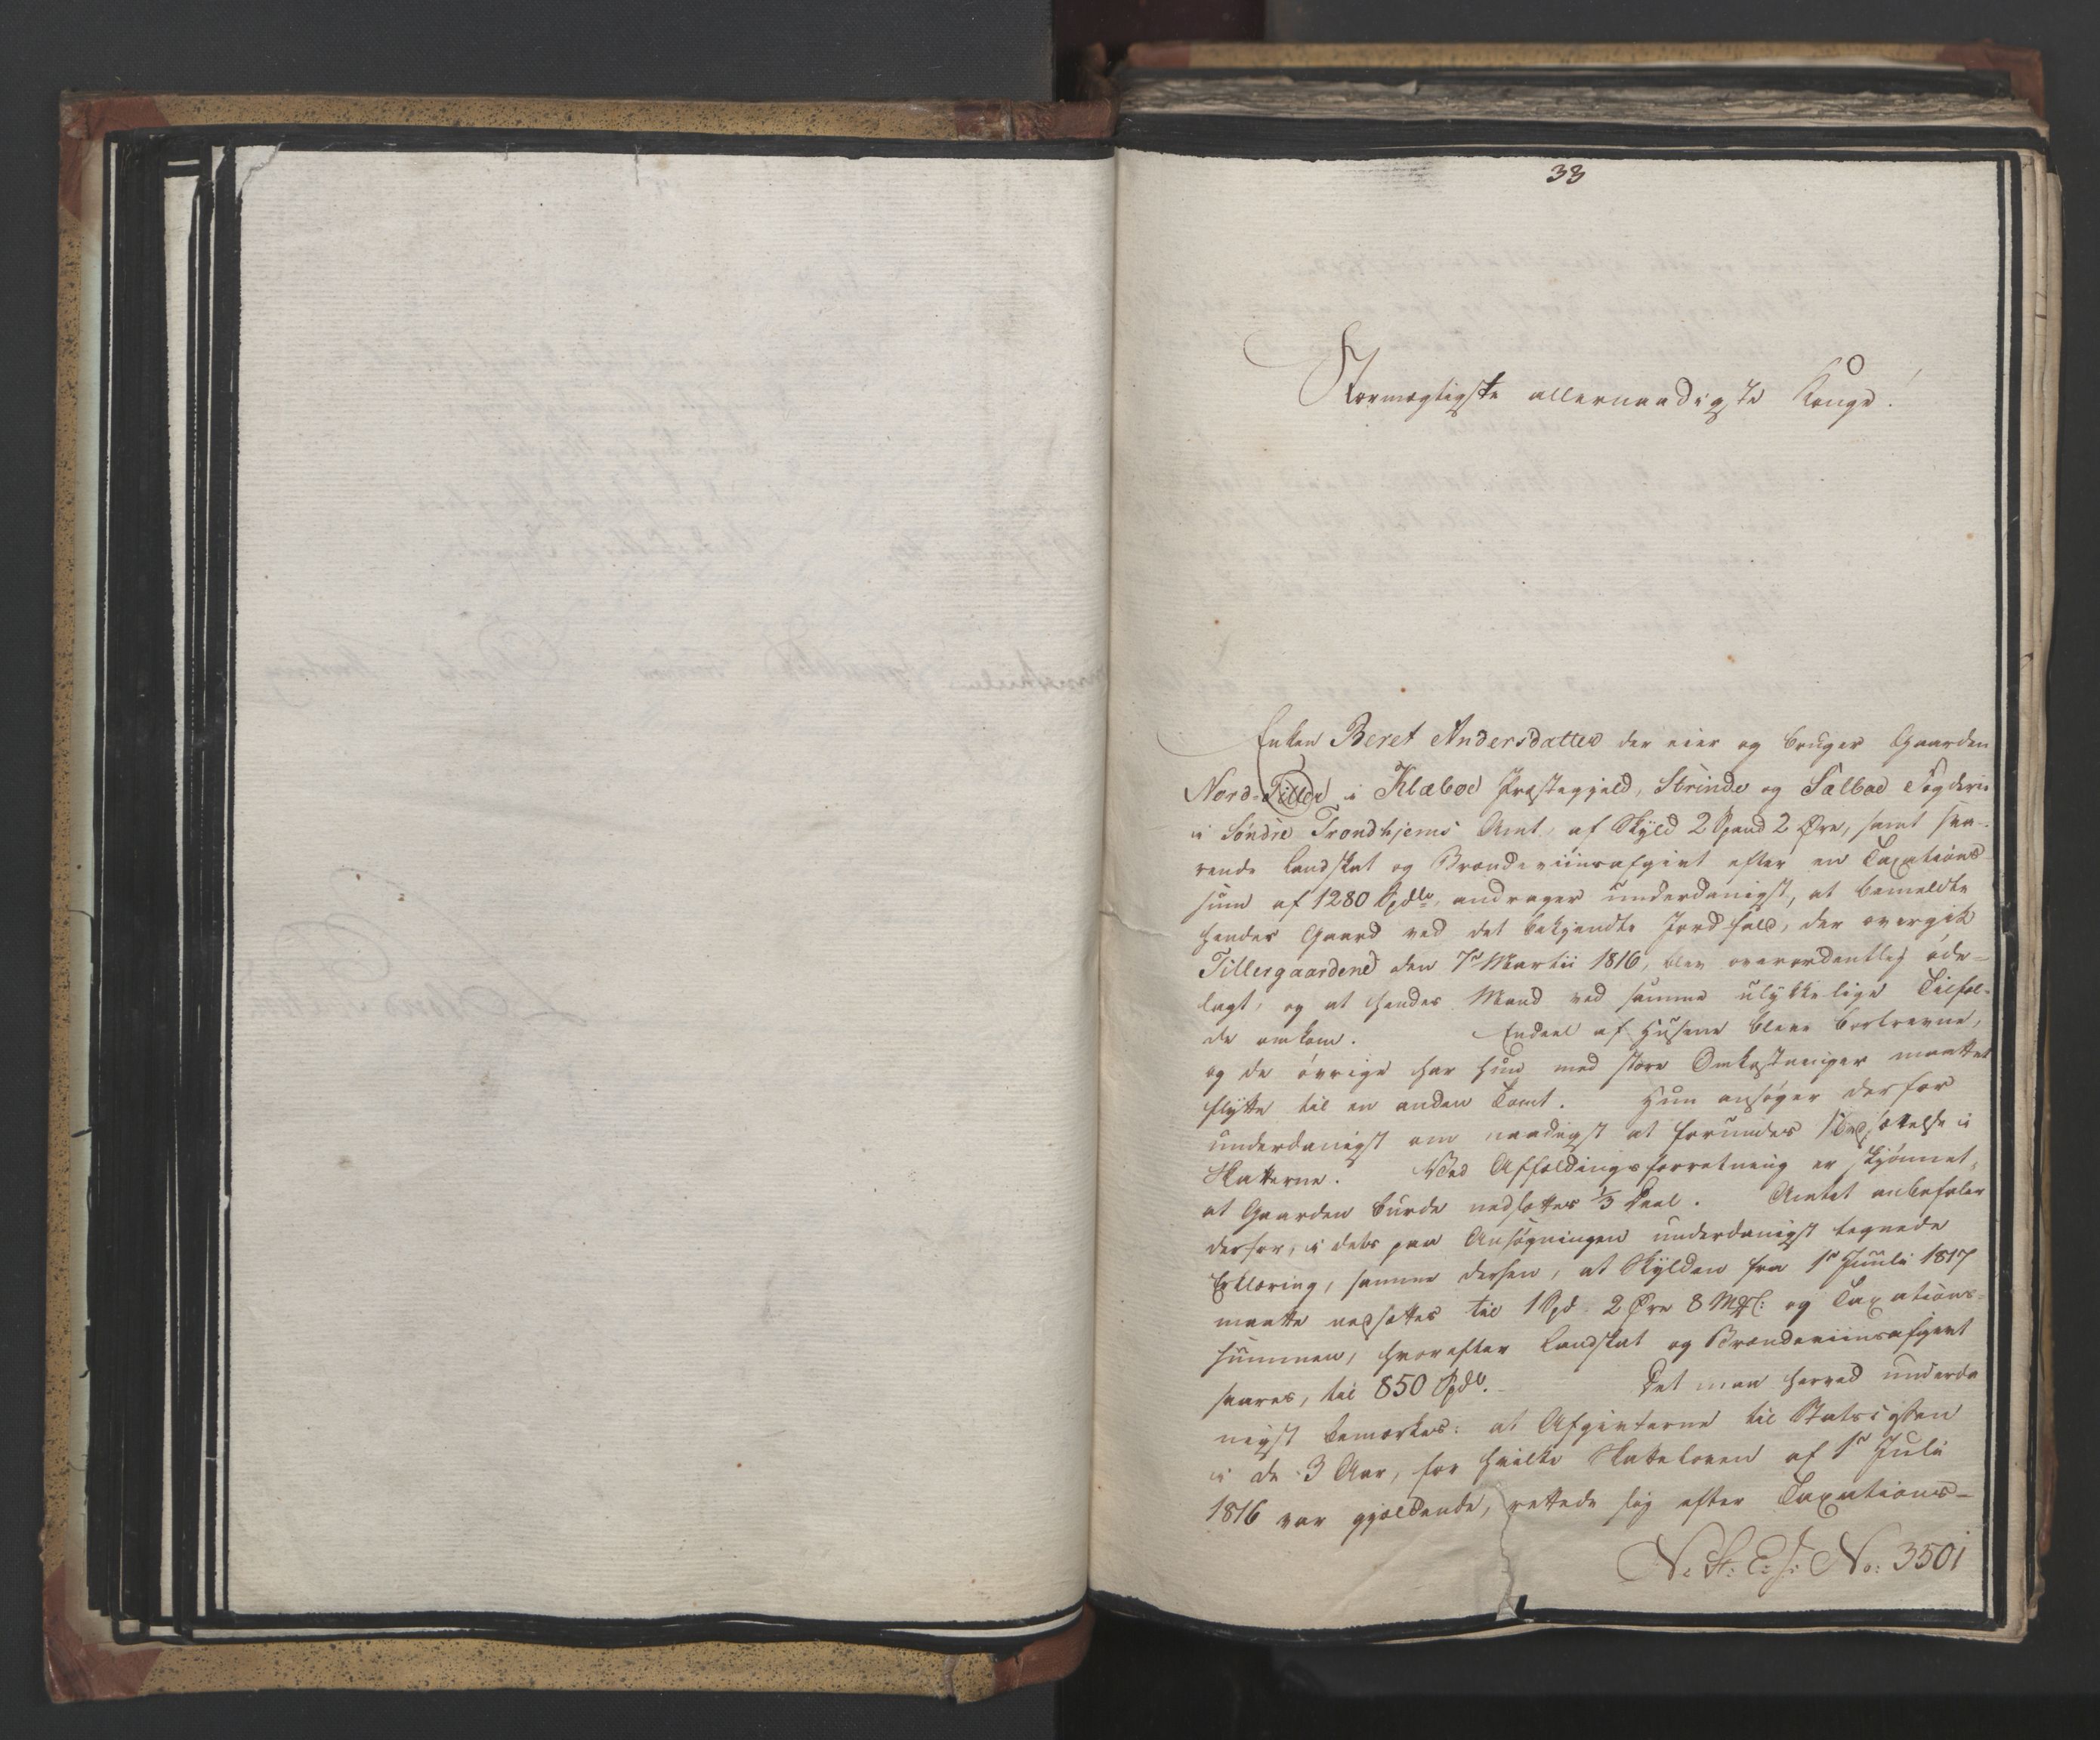 38
Stormægtigste allernaadigste Konge!
Enken Beret Andersdatter der eier og bruger Gaarden
Nord-Tiller i Klæboe Præstegjeld, Strinde og Sælboe Fogderie
i Søndre Trondhjems Amt, af Skyld 2 Spand 2 Øre, samt sva-
rende Landskat og Brændeviinsafgivt efter en Taxations-
sum af 1280 Spdlr, andrager underdanigst, at bemeldte
hendes Gaard ved det bekjendte Jordfald, der overgik
Tillergaardene den 7de Martii 1816, blev overordentlig øde-
lagt, og at hendes Mand ved samme ulykkelige Tilfæl-
de omkom. Endeel af Husene bleve bortrevne,
og de øvrige har hun med store Omkostninger maattet
flytte til en anden Tomt. Hun ansøger derfor
underdanigst om naadigst at forundes Nedsættelse i
Skatterne. Ved Affældingsforretning er skjønnet,
at Gaarden burde nedsættes 1/3 Deel. Amtet anbefaler
derfor, i dets paa Ansøgningen underdanigst tegnede
Erklæring, samme derhen, at Skylden fra 1ste Juuli 1817
maatte nedsættes til 1 Spd 2 Øre 8 Mkl: og Taxations-
summen, hvorefter Landskat og Brændeviinsafgivt
svares, til 850 Spdlr. Det maa herved underda
nigst bemærkes: at Afgivterne til Statscassen
i de 3 Aar, for hvilke Skatteloven af 1ste Juli
1816 var gjældende, rettede sig efter Taxations-
N: St: E: J: No: 3501